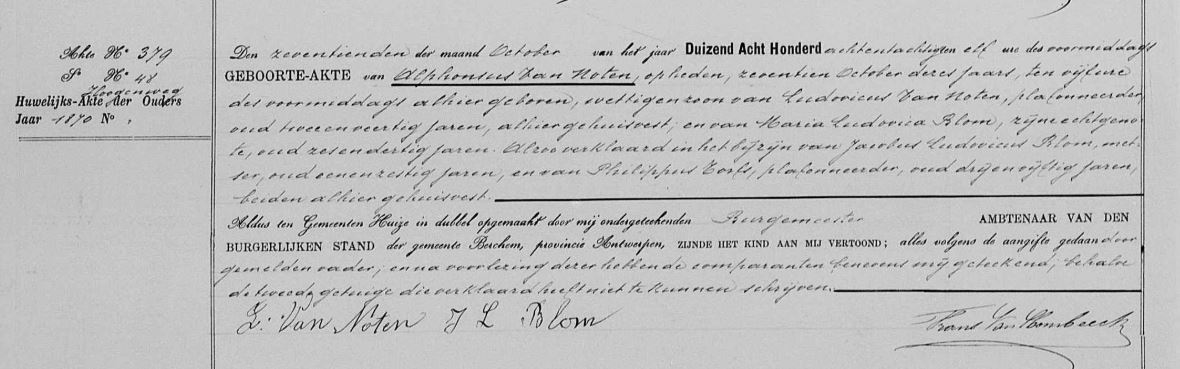 Akte Nº 379
Sⁿ Nº 48
Hoogenweg
Huwelijks-Akte der Ouders
Jaar 1870 Nº ,
Den zeventienden der maand October van het jaar Duizend Acht Honderd achtentachtig ten elf ure des voormiddags
GEBOORTE-AKTE van Alphonsus Van Noten, op heden, zeventien October dezes jaars, ten vijf ure
des voormiddags alhier geboren, wettigen zoon van Ludovicus Van Noten, plafonneerder,
oud twee en veertig jaren, alhier gehuisvest; en van Maria Ludovica Blom, zijne echtgeno-
te, oud zesendertig jaren. Alzoo verklaard in het bijzijn van Jacobus Ludovicus Blom, met-
ser, oud eenenzestig jaren, en van Philippus Torfs, plafonneerder, oud drijenvijftig jaren,
beiden alhier gehuisvest.
Aldus ten Gemeenten Huize in dubbel opgemaakt door mij ondergeteekenden Burgemeester AMBTENAAR VAN DEN
BURGERLIJKEN STAND der gemeente Berchem, provincie Antwerpen, ZIJNDE HET KIND AAN MIJ VERTOOND; alles volgens de aangifte gedaan door
gemelden vader; en na voorlezing dezer hebben de comparanten benevens mij geteekend; behalve
de tweede getuige die verklaard heeft niet te kunnen schrijven.
L. Van Noten J L Blom Frans Van Hombeeck